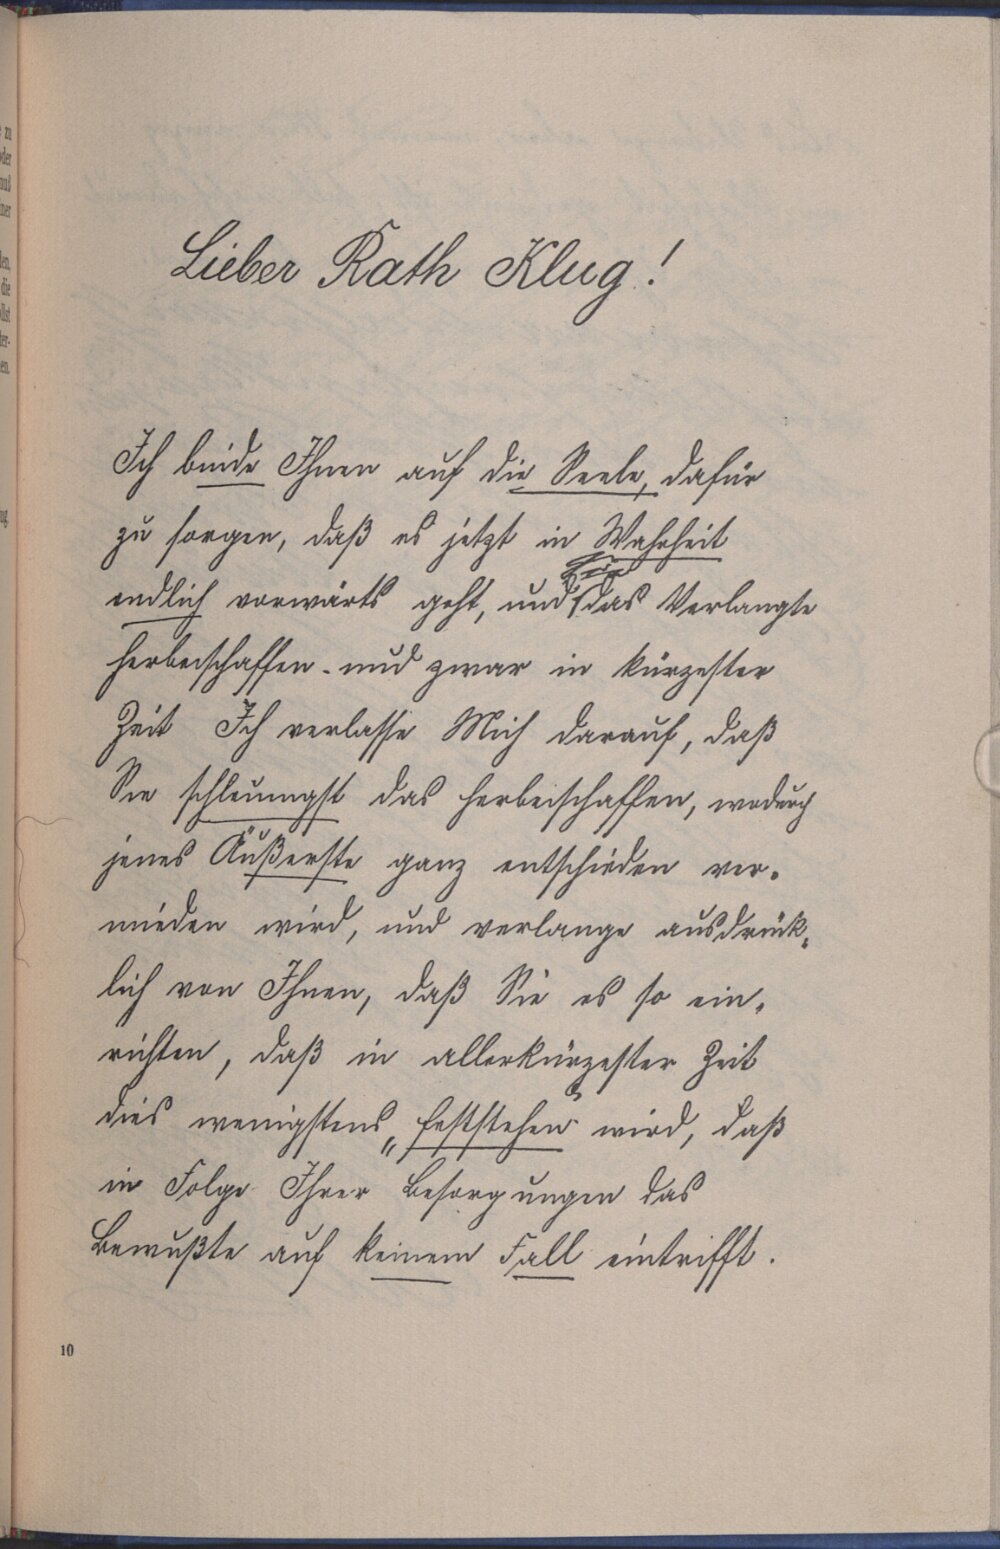 Lieber Rath Klug!
Ich binde Ihnen auf die Seele, dafür
zu sorgen, daß es jetzt in Wahrheit
endlich vorwärts geht, und Sie das Verlangte
herbeischaffen - und zwar in kürzester
Zeit Ich verlasse Mich darauf, daß
Sie schleunigst das herbeischaffen, wodurch
jenes Äußerste ganz entschieden ver-
mieden wird, und verlange ausdrück-
lich von Ihnen, daß Sie es so ein-
richten, daß in allerkürzester Zeit
dies wenigstens „feststehen" wird, daß
in Folge Ihrer Besorgungen das
Bewußte auf keinem Fall eintrifft.
10